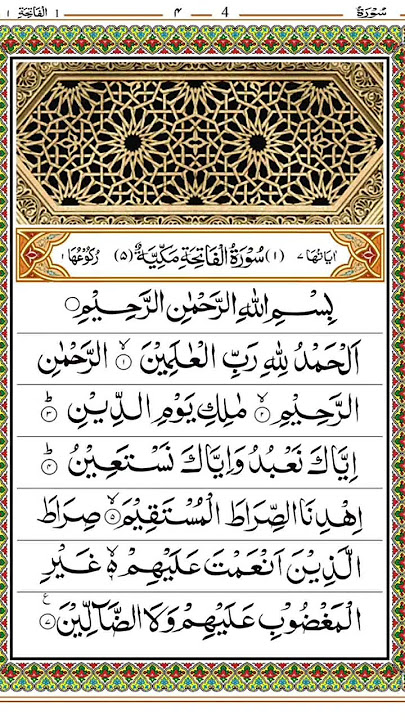 سُوْرَةُ 4 ۴ اَلْفَاتِحَة ١ ١
اٰيَاتُهَا ٧ (١) سُوْرَةُ الْفَاتِحَةِ مَكِّيَّةٌ (۵) رُكُوْعُهَا ١
بِسْمِ اللهِ الرَّحْمٰنِ الرَّحِيْمِ
اَلْحَمْدُ لِلهِ رَبِّ الْعٰلَمِيْنَ ۙ﴿١﴾ الرَّحْمٰنِ
الرَّحِيْمِ ۙ﴿٢﴾ مٰلِكِ يَوْمِ الدِّيْنِ ؕ﴿٣﴾
اِيَّاكَ نَعْبُدُ وَاِيَّاكَ نَسْتَعِيْنُ ؕ﴿۴﴾
اِهْدِنَا الصِّرَاطَ الْمُسْتَقِيْمَ ۙ﴿۵﴾ صِرَاطَ
الَّذِيْنَ اَنْعَمْتَ عَلَيْهِمْ ۙ۬ غَيْرِ
الْمَغْضُوْبِ عَلَيْهِمْ وَلَا الضَّآلِّيْنَ ﴿٧﴾ ع